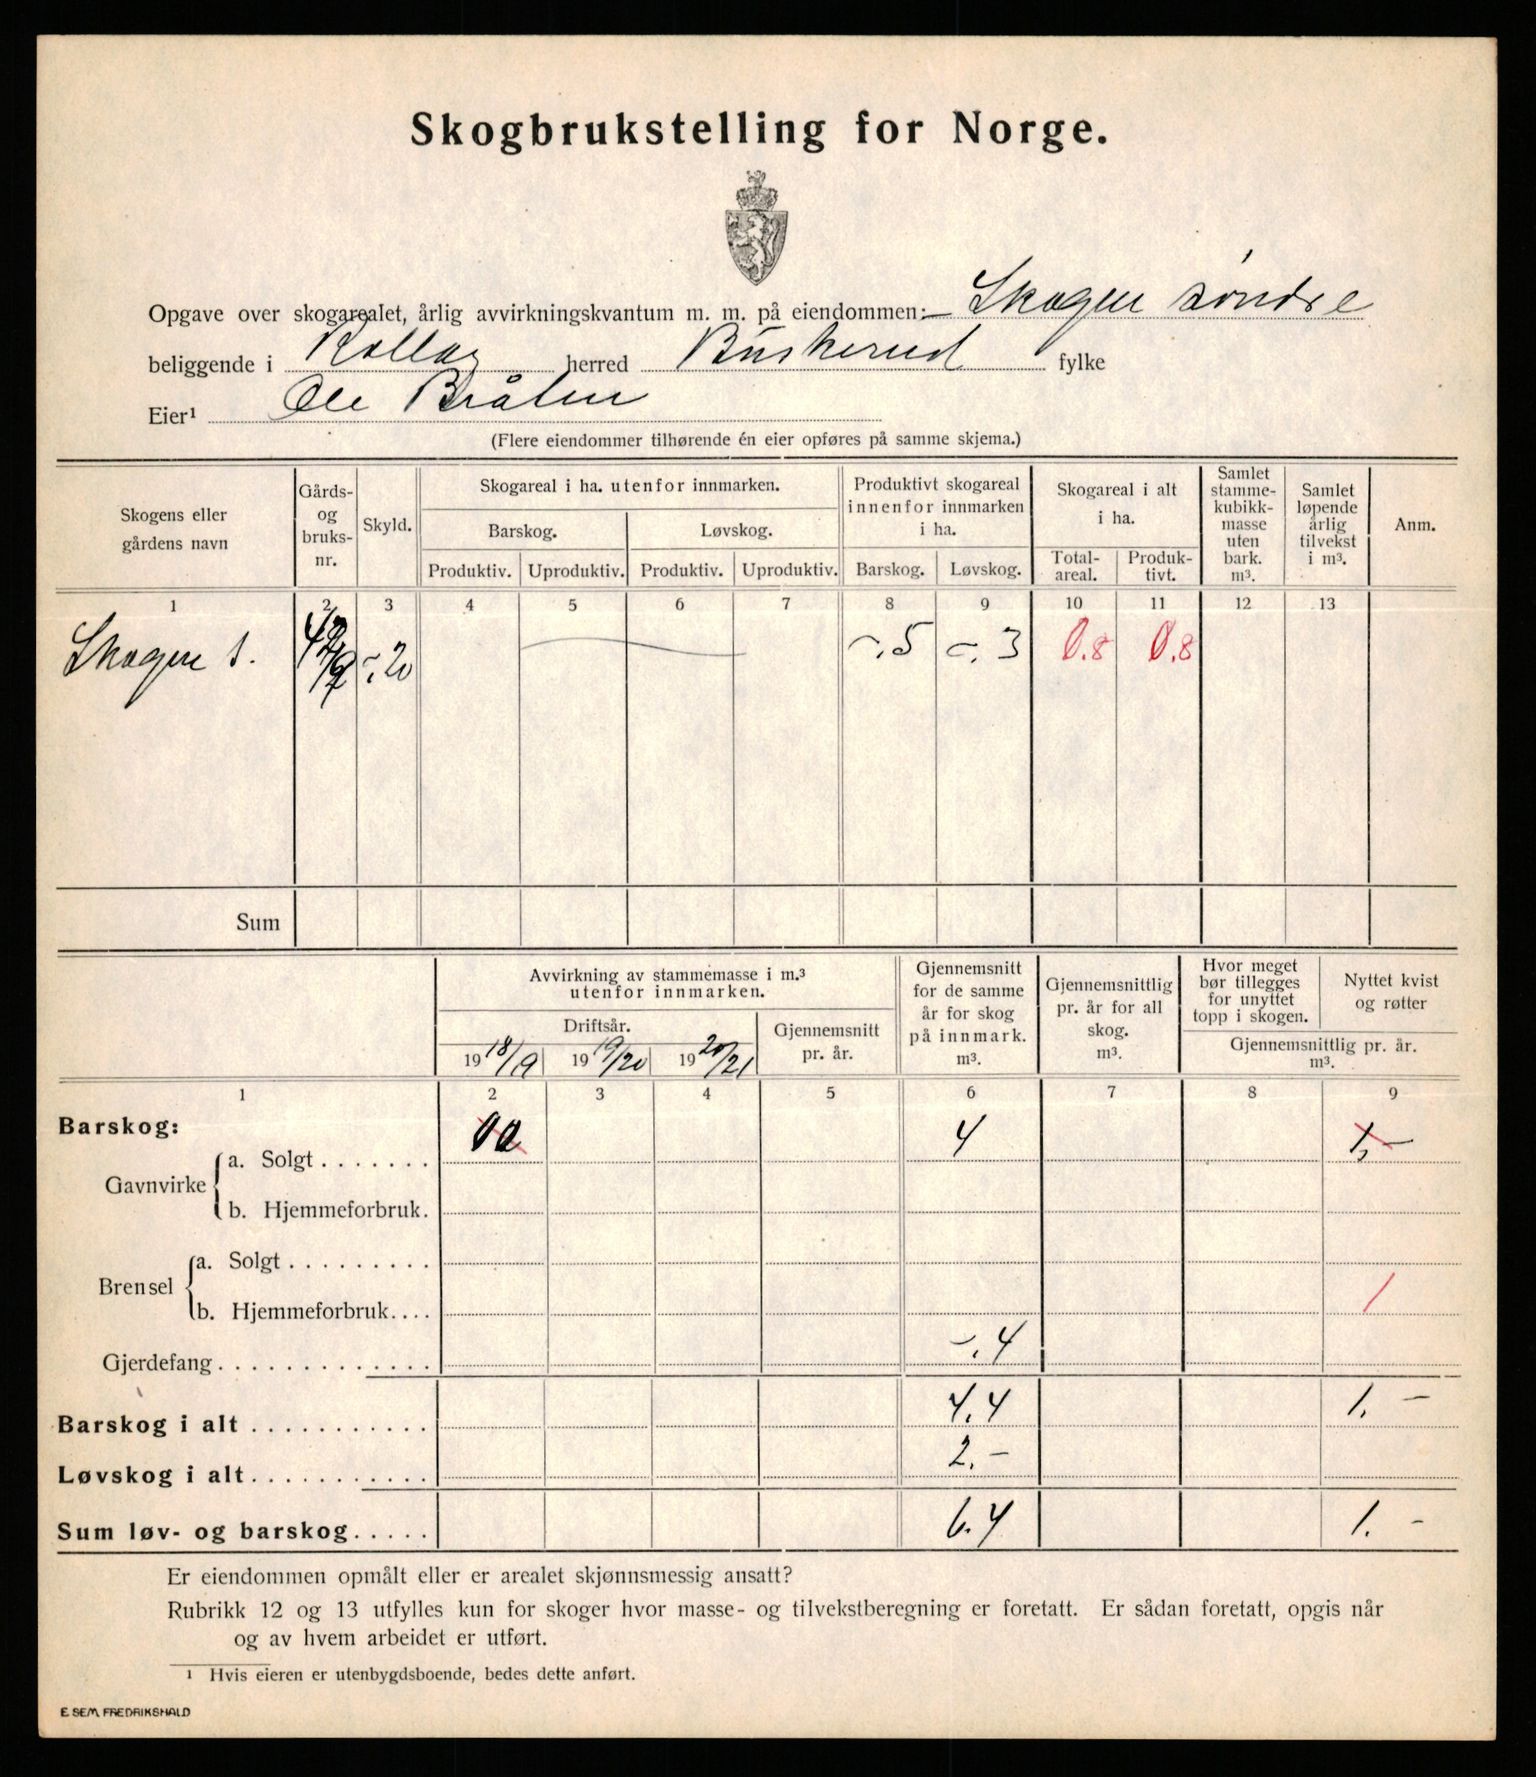 Skogbrukstelling for Norge.
Opgave over skogarealet, årlig avvirkningskvantum m. m. på eiendommen: Skogen søndre
beliggende i Rollag herred Buskerud fylke
Eier¹ Ole Bråten
(Flere eiendommer tilhørende én eier opføres på samme skjema.)
Skogens eller gårdens navn
Gårds- og bruks- nr.
Skyld.
Skogareal i ha. utenfor innmarken.
Barskog. Løvskog.
Produktiv. Uproduktiv. Produktiv. Uproduktiv.
Produktivt skogareal innenfor innmarken i ha.
Barskog. Løvskog.
Skogareal i alt i ha.
Total- areal. Produk- tivt.
Samlet stamme- kubikk- masse uten bark. m³.
Samlet løpende årlig tilvekst i m³.
Anm.
1 2 3 4 5 6 7 8 9 10 11 12 13
Skogen s. -.20 -.5 -.3 0.8 0.8
Sum
Avvirkning av stammemasse i m.³ utenfor innmarken.
Driftsår.
19 18/19 19 19/20 19 20/21
Gjennemsnitt pr. år.
Gjennemsnitt for de samme år for skog på innmark. m³.
Gjennemsnittlig pr. år for all skog. m³.
Hvor meget bør tillegges for unyttet topp i skogen.
Nyttet kvist og røtter
Gjennemsnittlig pr. år. m³.
1 2 3 4 5 6 7 8 9
Barskog:
Gavnvirke
a. Solgt . . . . . . . 4 1,-
b. Hjemmeforbruk.
Brensel
a. Solgt . . . . . . . . .
b. Hjemmeforbruk. . . . 1
Gjerdefang . . . . . . . . . . . . . -.4
Barskog i alt . . . . . . . . . . . 4.4 1. -
Løvskog i alt . . . . . . . . . . . 2.-
Sum løv- og barskog . . . . . 6.4 1. -
Er eiendommen opmålt eller er arealet skjønnsmessig ansatt?
Rubrikk 12 og 13 utfylles kun for skoger hvor masse- og tilvekstberegning er foretatt. Er sådan foretatt, opgis når
og av hvem arbeidet er utført.
¹ Hvis eieren er utenbygdsboende, bedes dette anført.
E. SEM, FREDRIKSHALD